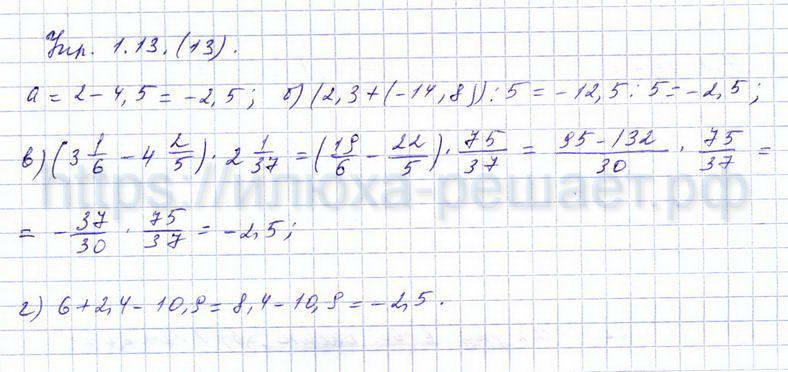 Упр. 1.13.(13).
а = 2 - 4,5 = -2,5; б) (2,3 + (-14,8)) : 5 = -12,5 : 5 = -2,5;
в) (3 1/6 - 4 2/5) · 2 1/37 = (19/6 - 22/5) · 75/37 = (95-132)/30 · 75/37 =
https://илюха-решает.рф
= -37/30 · 75/37 = -2,5;
г) 6 + 2,4 - 10,9 = 8,4 - 10,9 = -2,5.